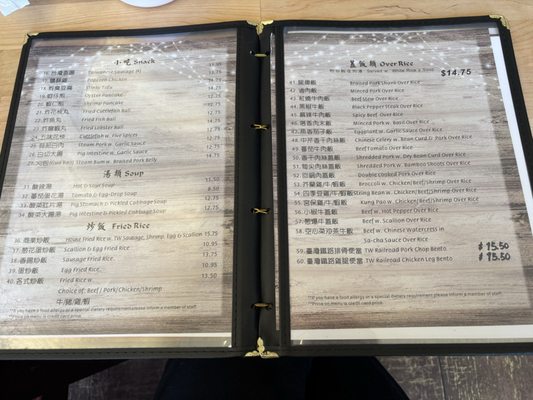 小吃 Snack
Taiwanese Sausage
Popcorn Chicken
Stinky Tofu
Oyster Pancake
Shrimp Pancake
Fried Cuttlefish Ball
Fried Fish Ball
Fried Lobster Ball
Cuttlefish w. Five Spices
Steam Pork w. Garlic Sauce
Pig Intestine w. Garlic Sauce
Steam Bun w. Braised Pork Belly
湯類 Soup
31. 酸辣湯 Hot & Sour Soup
32. 蕃茄蛋花湯 Tomato & Egg-Drop Soup 8.50
Pig Stomach & Pickled Cabbage Soup 12.75
Pig Intestine & Pickled Cabbage Soup 12.75
炒飯 Fried Rice
House Fried Rice w. TW Sausage, Shrimp, Egg & Scallion 15.75
37. 蔥花蛋炒飯 Scallion & Egg Fried Rice 10.95
38. 香腸炒飯 Sausage Fried Rice 13.75
39. 蛋炒飯 Egg Fried Rice 10.95
40. 各式炒飯 Fried Rice 13.50
Choice of: Beef / Pork/Chicken/Shrimp
牛/豬/雞/蝦
**If you have a food allergy or a special dietary requirement please inform a member of staff
**Price on menu is credit card price.
蓋飯類 Over Rice
Served w. White Rice & Soup
$14.75
Braised Pork Shank Over Rice
42. 滷肉飯 Minced Pork Over Rice
43. 紅燒牛肉飯 Beef Stew Over Rice
44. 黑椒牛飯 Black Pepper Steak Over Rice
45. 麻辣牛肉飯 Spicy Beef Over Rice
Minced Pork w. Basil Over Rice
Eggplant w. Garlic Sauce Over Rice
Chinese Celery w. Bean Curd & Pork Over Rice
49. 蕃茄牛肉飯 Beef Tomato Over Rice
50. 香干肉絲蓋飯 Shredded Pork w. Dry Bean Curd Over Rice
51. 筍尖肉絲蓋飯 Shredded Pork w. Bamboo Shoots Over Rice
52. 回鍋肉蓋飯 Double Cooked Pork Over Rice
53. 芥蘭雞/牛/蝦蓋飯 Broccoli w. Chicken/Beef/Shrimp Over Rice
54. 四季豆雞/牛/蝦蓋飯 String Bean w. Chicken/Beef/Shrimp Over Rice
55. 宮保雞/牛/蝦蓋飯 Kung Pao w. Chicken/Beef/Shrimp Over Rice
56. 小椒牛蓋飯 Beef w. Hot Pepper Over Rice
57. 蔥爆牛蓋飯 Beef w. Scallion Over Rice
58. 空心菜沙茶牛飯 Beef w. Chinese Watercress in
Sa-cha Sauce Over Rice
59. 臺灣鐵路排骨便當 TW Railroad Pork Chop Bento $15.50
60. 臺灣鐵路雞腿便當 TW Railroad Chicken Leg Bento $15.50
**If you have a food allergy or a special dietary requirement please inform a member of staff
**Price on menu is credit card price